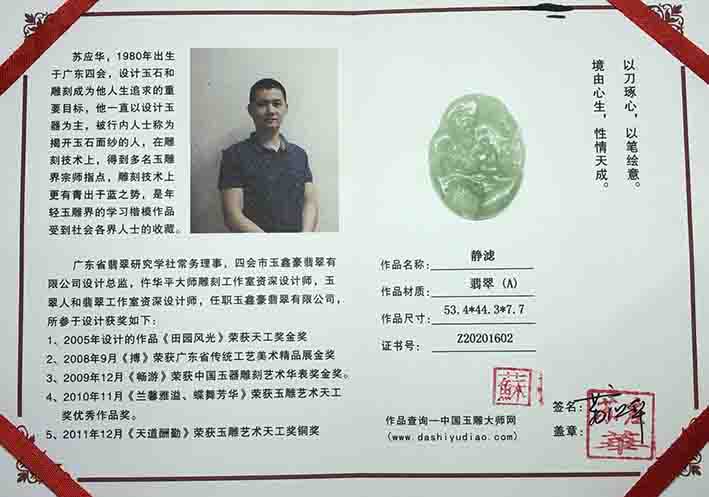 苏应华，1980年出生
于广东四会，设计玉石和
雕刻成为他人生追求的重
要目标，他一直以设计玉
器为主，被行内人士称为
揭开玉石面纱的人，在雕
刻技术上，得到多名玉雕
界宗师指点，雕刻技术上
更有青出于蓝之势，是年
轻玉雕界的学习楷模作品
受到社会各界人士的收藏。
广东省翡翠研究学社常务理事，四会市玉鑫豪翡翠有
限公司设计总监，仵华平大师雕刻工作室资深设计师，玉
翠人和翡翠工作室资深设计师，任职玉鑫豪翡翠有限公司，
所参于设计获奖如下：
1、2005年设计的作品《田园风光》荣获天工奖金奖
2、2008年9月《搏》荣获广东省传统工艺美术精品展金奖
3、2009年12月《畅游》荣获中国玉器雕刻艺术华表奖金奖。
4、2010年11月《兰馨雅溢、蝶舞芳华》荣获玉雕艺术天工
奖优秀作品奖。
5、2011年12月《天道酬勤》荣获玉雕艺术天工奖铜奖
以刀琢心，以笔绘意。
境由心生，性情天成。
作品名称：静滤
作品材质：翡翠（A）
作品尺寸：53.4*44.3*7.7
证书号：Z20201602
签名：
盖章：
作品查询—中国玉雕大师网
(www.dashiyudiao.com)